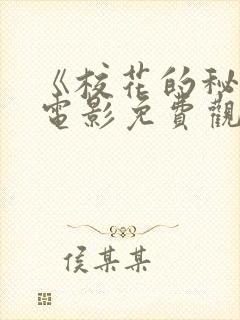 《校花的秘
電影免費觀
侯某某